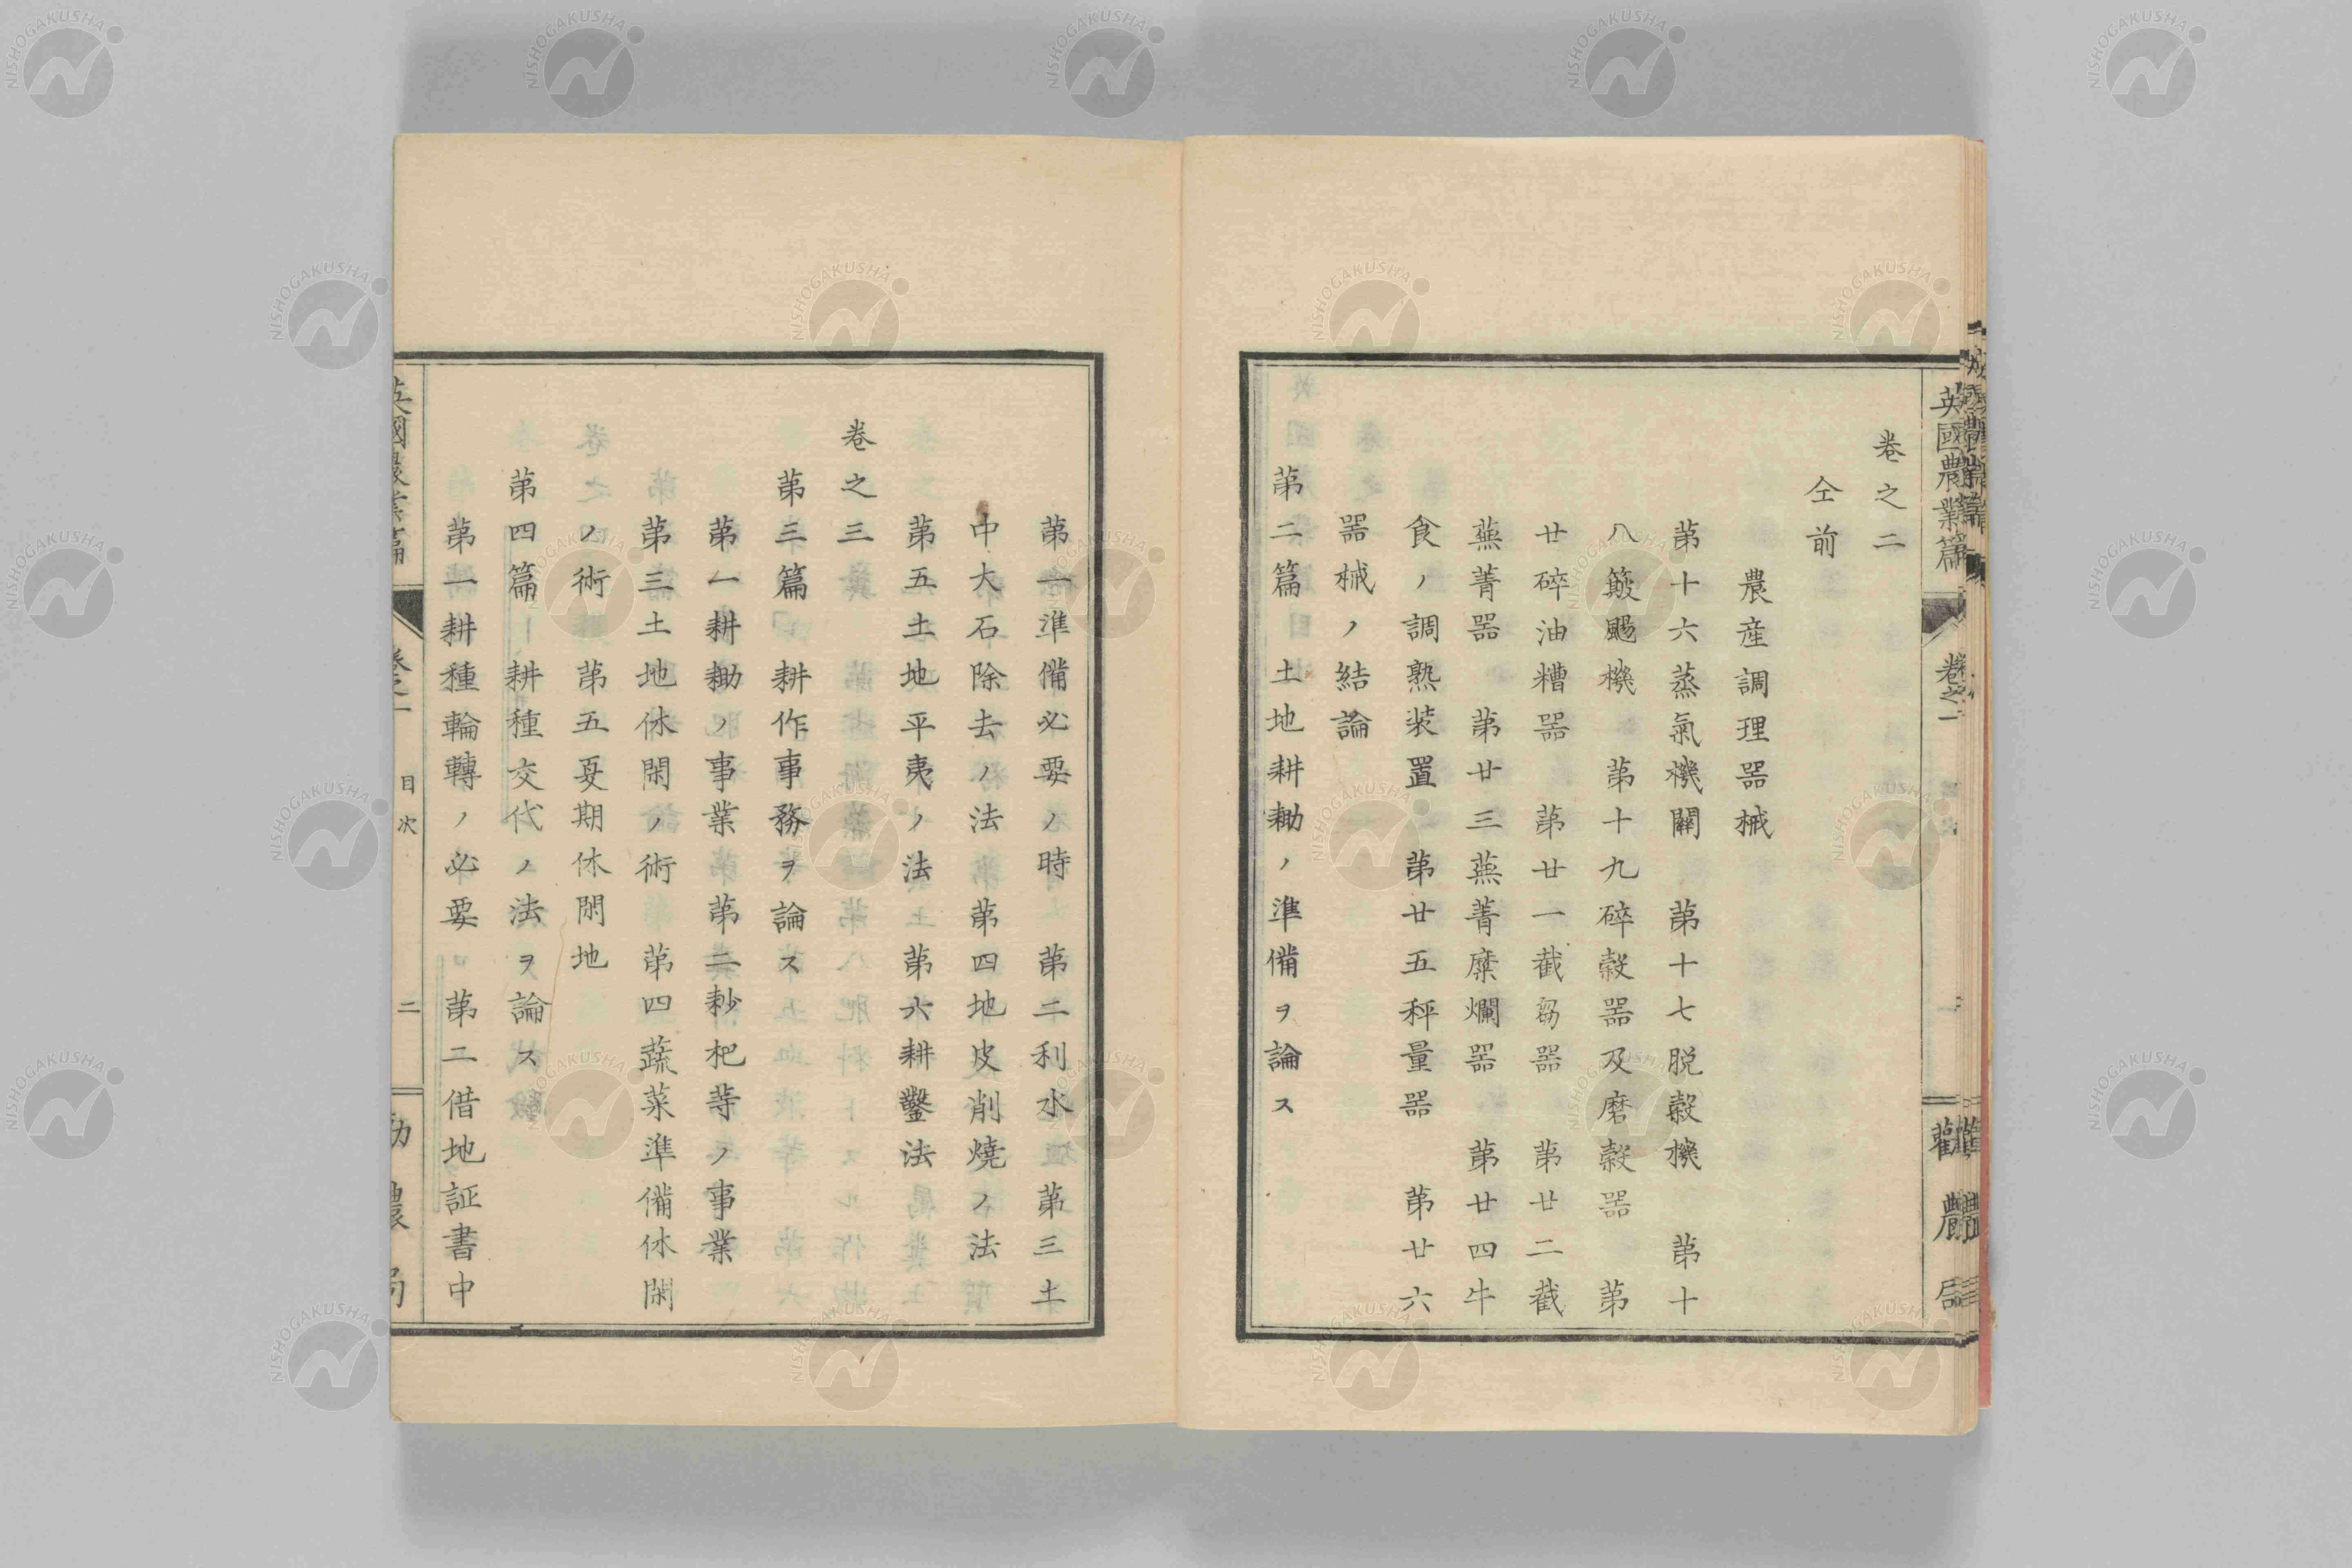 英國農業篇 卷之一 勸農局
卷之二
仝前
農産調理器械
第十六蒸氣機關 第十七脱穀機 第十
八簸颺機 第十九碎穀器及磨穀器 第
廿碎油糟器 第廿一截芻器 第廿二截
蕪菁器 第廿三蕪菁糜爛器 第廿四牛
食ノ調熟装置 第廿五秤量器 第廿六
器械ノ結論
第二篇 土地耕耡ノ準備ヲ論ス
第一準備必要ノ時 第二利水 第三土
中大石除去ノ法 第四地皮削燒ノ法
第五土地平夷ノ法 第六耕鑿法
卷之三
第三篇 耕作事務ヲ論ス
第一耕耡ノ事業 第二耖杷等ノ事業
第三土地休閑ノ術 第四蔬菜準備休閑
ノ術 第五夏期休閑地
第四篇 耕種交代ノ法ヲ論ス
第一耕種輪轉ノ必要 第二借地証書中
英國農業篇 卷之一 目次 二 勸農局
NISHOGAKUSHA